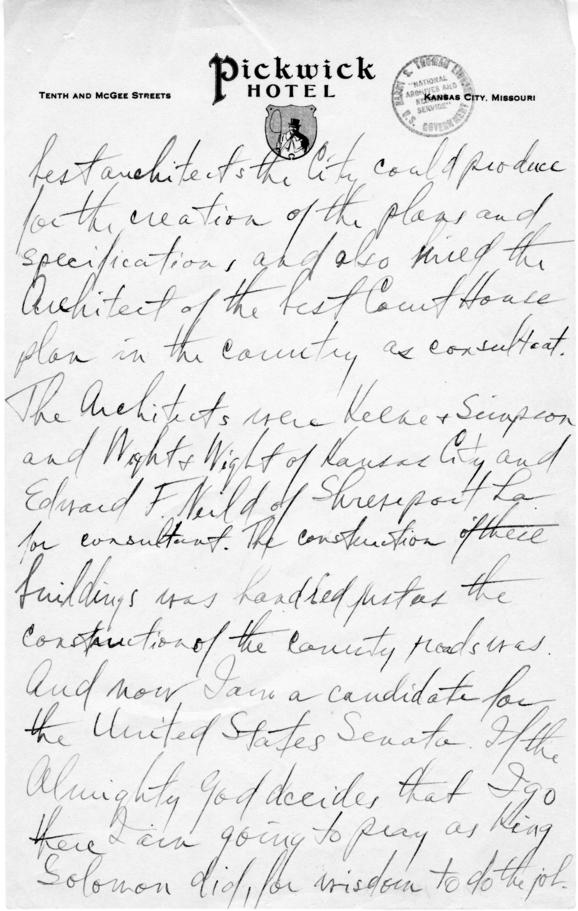 Pickwick
HOTEL
TENTH AND MCGEE STREETS
KANSAS CITY, MISSOURI
HARRY S. TRUMAN LIBRARY
"NATIONAL
ARCHIVES AND
SERVICE"
U.S. GOVERNMENT
best architects the City could produce
for the creation of the plans and
specifications and also hired the
Architect of the best Court House
plan in the country as consultant.
The Architects were Keene & Simpson
and Wight & Wight of Kansas City and
Edward F. Neild of Shreveport La
for consultant. The construction of these
buildings was handled just as the
construction of the county roads was.
And now I am a candidate for
the United States Senate. If the
Almighty God decides that I go
there I am going to pray as King
Solomon did, for wisdom to do the job.